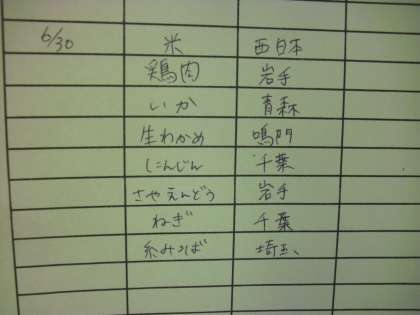 6/30 米 西日本
鶏肉 岩手
いか 青森
生わかめ 鳴門
にんじん 千葉
さやえんどう 岩手
ねぎ 千葉
糸みつば 埼玉